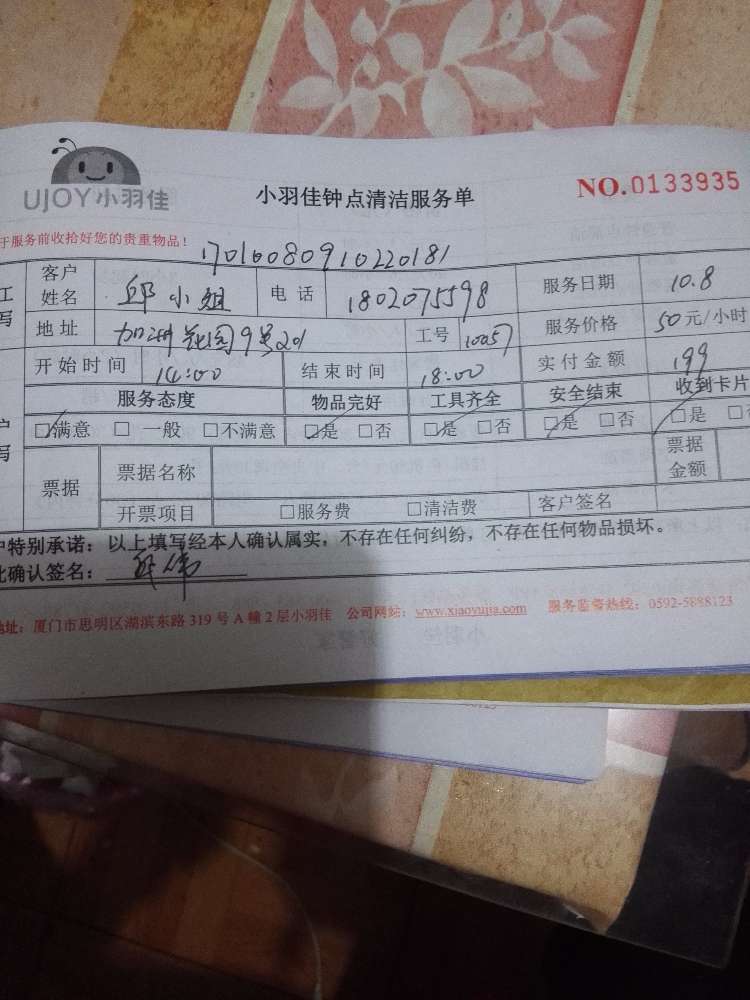 UJOY小羽佳
小羽佳钟点清洁服务单
NO.0133935
于服务前收拾好您的贵重物品！
170160080910220181
客户姓名 邱小姐 电话 1802075598 服务日期 10.8
地址 加洲花园9号201 工号 10057 服务价格 50元/小时
开始时间 14:00 结束时间 18:00 实付金额 199
服务态度 物品完好 工具齐全 安全结束 收到卡片
□满意 □一般 □不满意 □是 □否 □是 □否 □是 □否 □是
票据 票据名称 票据金额
开票项目 □服务费 □清洁费 客户签名
户特别承诺：以上填写经本人确认属实，不存在任何纠纷，不存在任何物品损坏。
此确认签名：
地址：厦门市思明区湖滨东路319号A幢2层小羽佳 公司网站：www.xiaoyujia.com 服务监督热线：0592-5888123